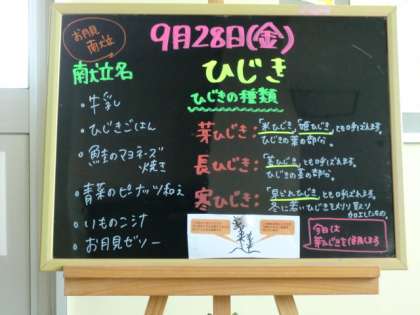 お月見
献立
9月28日(金)
献立名
・牛乳
・ひじきごはん
・鮭のマヨネーズ
焼き
・青菜のピーナッツ和え
・いものこ汁
・お月見ゼリー
ひじき
ひじきの種類
芽ひじき:「米ひじき」「姫ひじき」とも呼ばれます。
ひじきの葉の部分。
長ひじき:「茎ひじき」とも呼ばれます。
ひじきの茎の部分。
寒ひじき:「見どれひじき」とも呼ばれ、
冬に若いひじきをメリメリ取り
加工したもの。
今日は
芽ひじきを使用しよう